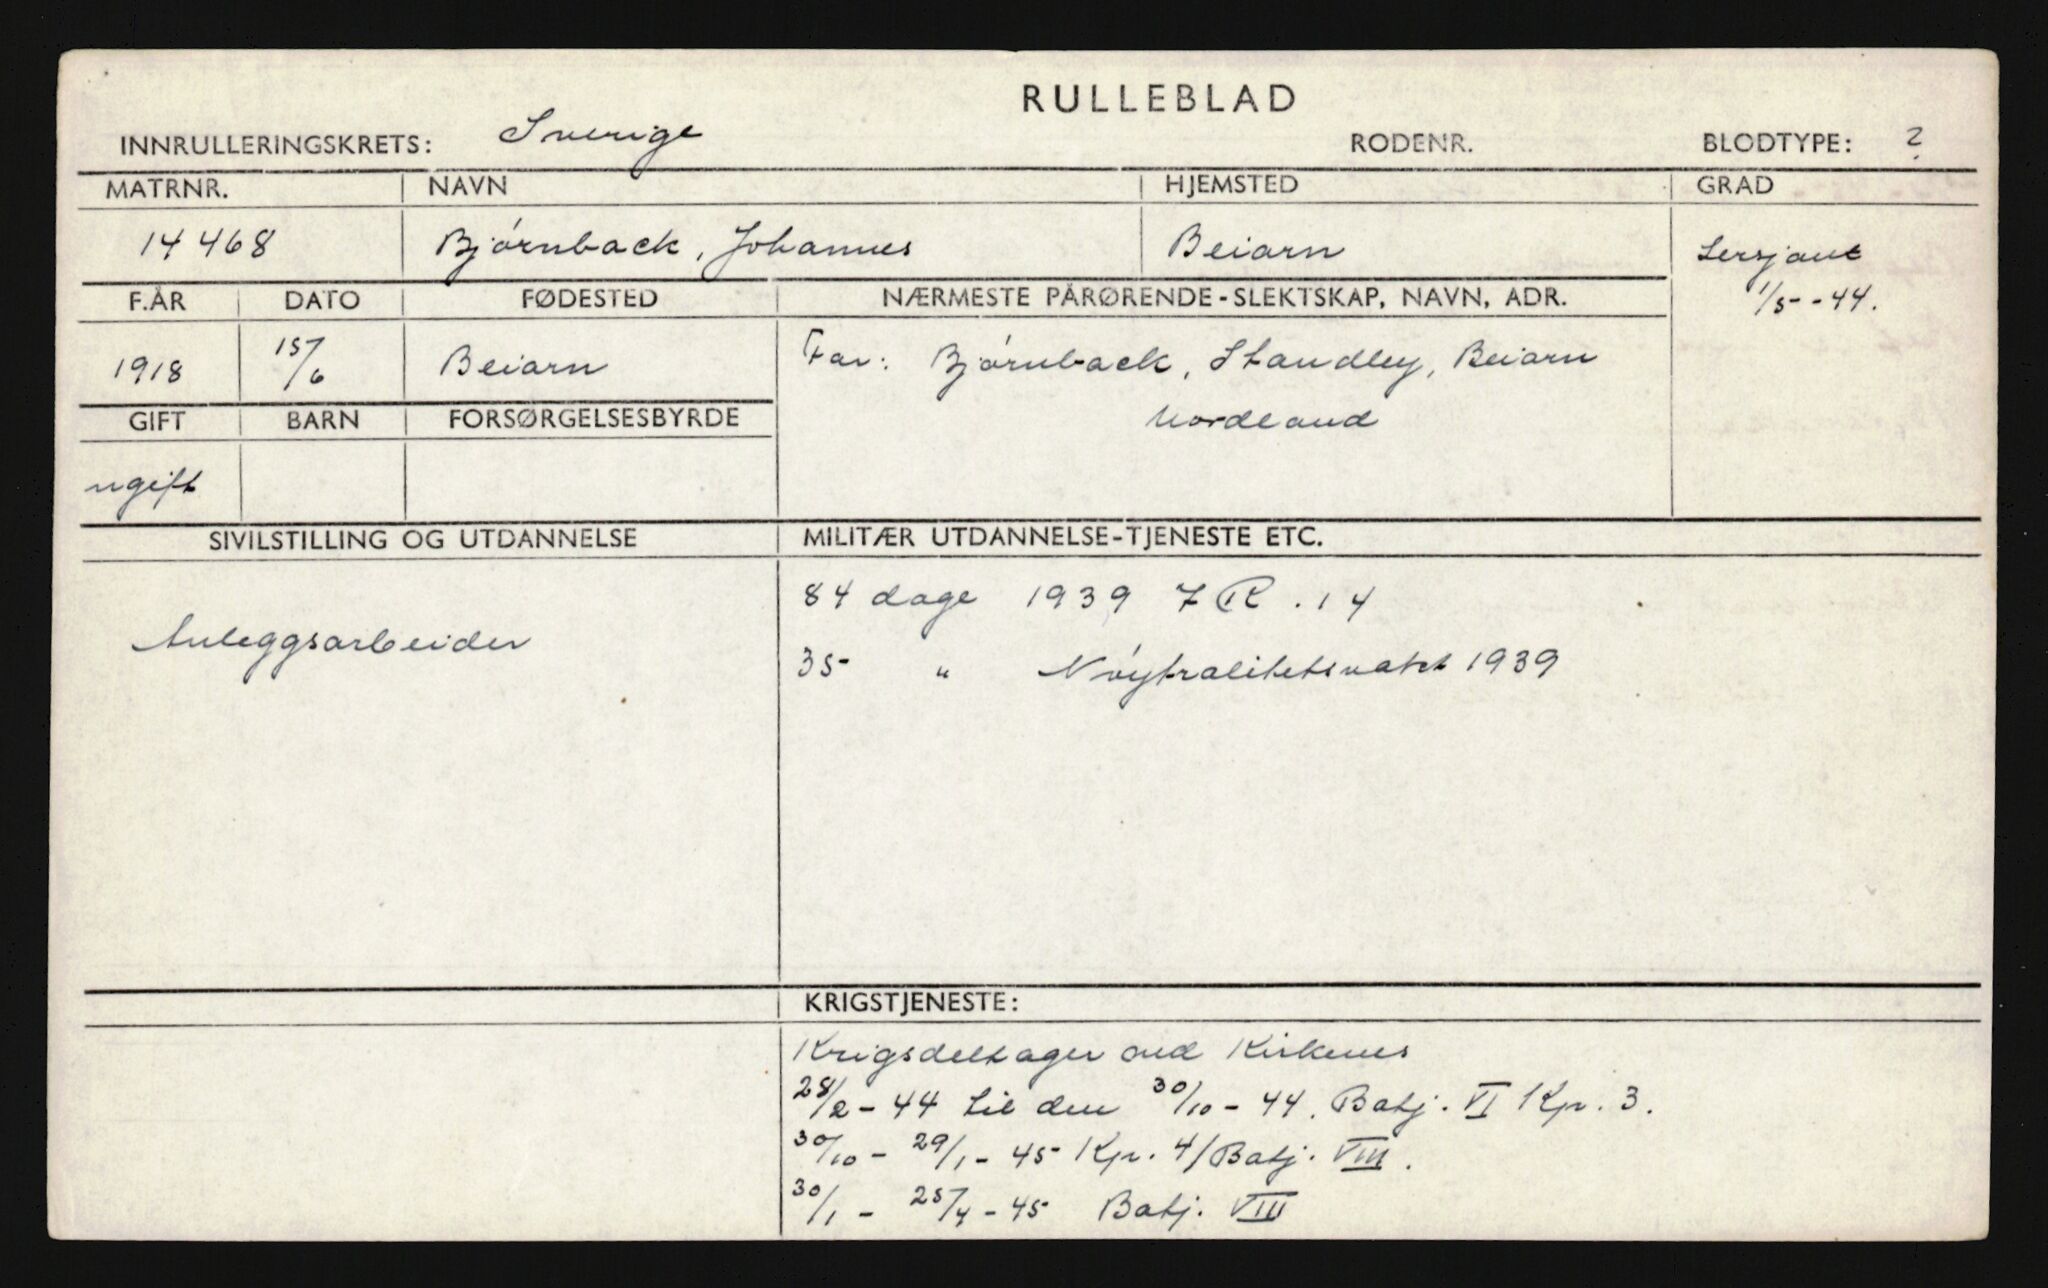 RULLEBLAD
INNRULLERINGSKRETS: Sverige RODENR. BLODTYPE: ?
MATRNR. NAVN HJEMSTED GRAD
14468 Bjørnback, Johannes Beiarn Sersjant
1/5--44.
F.ÅR DATO FØDESTED NÆRMESTE PÅRØRENDE-SLEKTSKAP, NAVN, ADR.
1918 15/6 Beiarn Far: Bjørnback, Standley, Beiarn
Nordland
GIFT BARN FORSØRGELSESBYRDE
ugift
SIVILSTILLING OG UTDANNELSE MILITÆR UTDANNELSE-TJENESTE ETC.
84 dage 1939 7 R. 14
Anleggsarbeider
35 " Nøytralitetsvakt 1939
KRIGSTJENESTE:
Krigsdeltager ved Kirkenes
28/2-44 til den 30/10-44. Batj. VI Kp. 3.
30/10- 29/1-45 Kp. 4/Batj. VIII.
30/1- 25/4-45 Batj. VIII